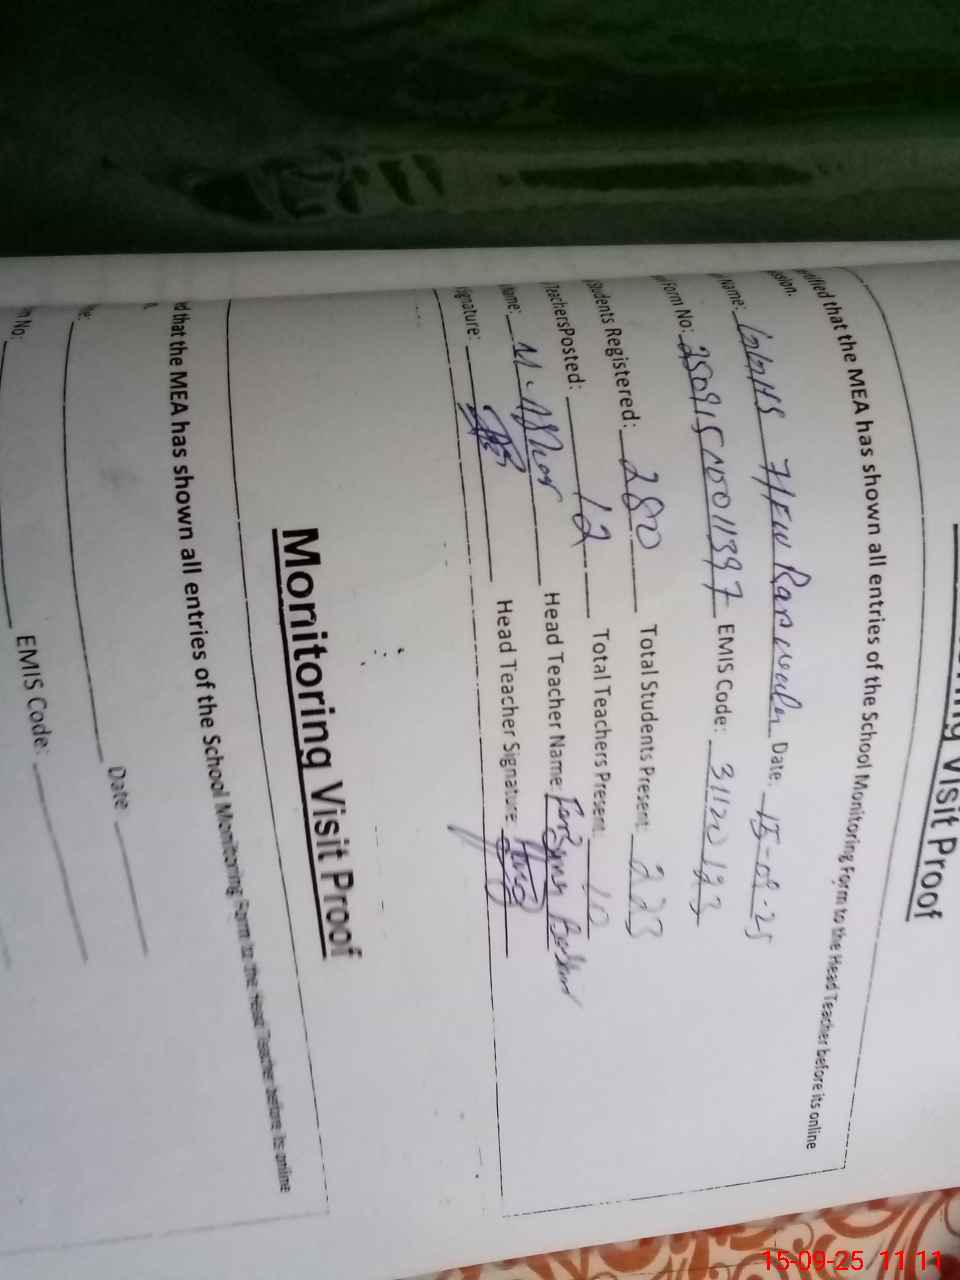 ng Visit Proof
rtified that the MEA has shown all entries of the School Monitoring Form to the Head Teacher before its online
ssion.
Name: GGHS 71EW Date: 15-09-25
Form No: 250915N0011397 EMIS Code: 31120123
Students Registered: 280 Total Students Present: 223
TeachersPosted: 12 Total Teachers Present: 10
Name: M. Head Teacher Name:
ignature: Head Teacher Signature:
Monitoring Visit Proof
d that the MEA has shown all entries of the School Monitoring Form to the Head Teacher before its online
Date
m No: EMIS Code:
15-09-25 11 11